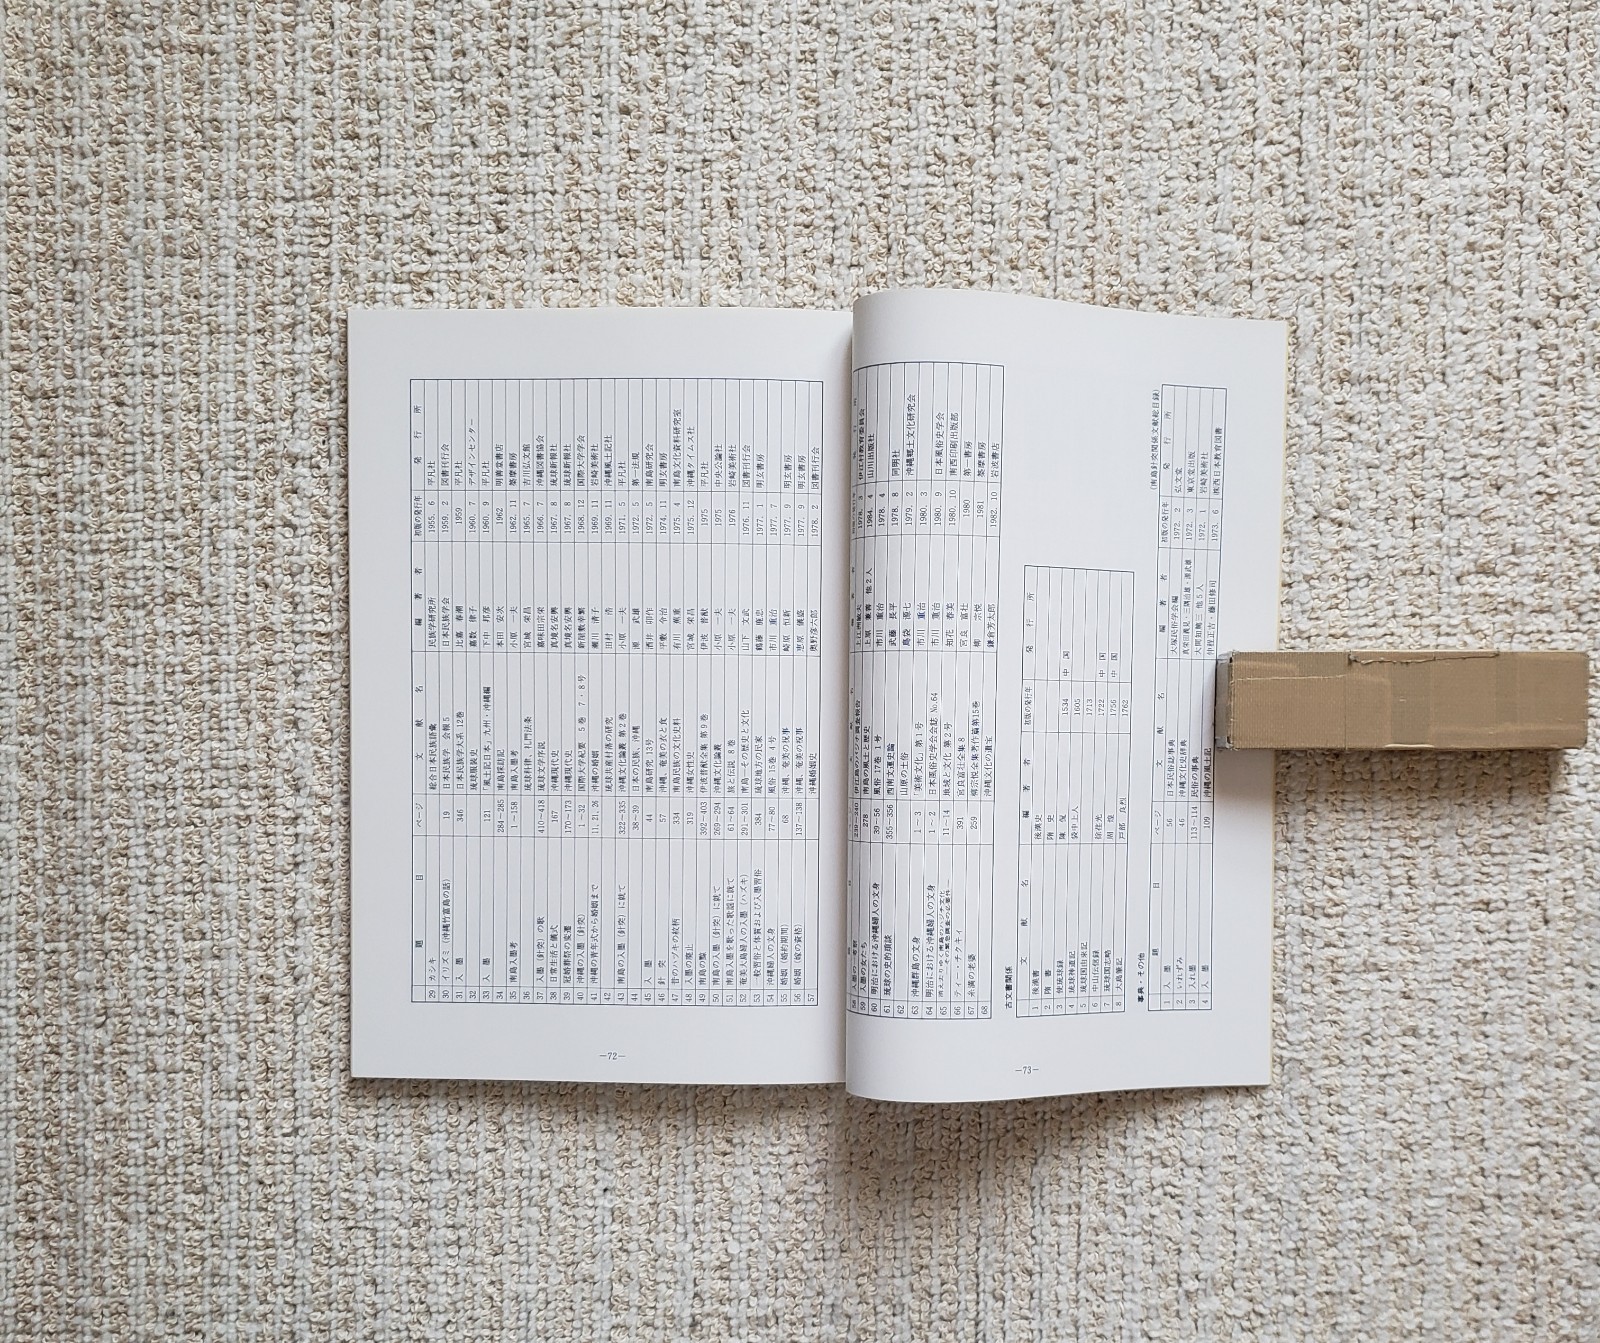 題 目 ページ 文 献 名 編 著 者 初版の発行年 発 行 所
29 イシキ 総合日本民族語彙 民族学研究所 1955. 6 平凡社
30 イリズミ（沖縄竹富島の話） 19 日本民族学 会報5 日本民族学会 1959. 2 図書刊行会
31 入 墨 346 日本民族学大系 12巻 比嘉 春潮 1959 平凡社
32 琉球服装史 嘉数 律子 1960. 7 デザインセンター
33 入 墨 121 「風土記日本」九州・沖縄編 下中 邦彦 1960. 9 平凡社
34 284-285 南島採訪記 本田 安次 1962 明善堂書店
35 南島入墨考 1-158 南島入墨考 小原 一夫 1962. 11 築摩書房
36 琉球科律、糺門法条 宮城 栄昌 1965. 7 吉川弘文館
37 入墨（針突）の歌 410-418 琉球文学序説 嘉味田宗栄 1966. 7 沖縄図書協会
38 日常生活と儀式 167 沖縄現代史 真境名安興 1967. 8 琉球新報社
39 冠婚葬祭の変遷 170-173 沖縄現代史 真境名安興 1967. 8 琉球新報社
40 沖縄の入墨（針突） 1-32 国際大学紀要 5巻 7・8号 新屋敷幸繁 1968. 12 国際大学学会
41 沖縄の青年式から婚姻まで 11, 21, 26 沖縄の婚姻 瀬川 清子 1969. 11 岩崎美術社
42 琉球共産村落の研究 田村 浩 1969. 11 沖縄風土記社
43 南島の入墨（針突）に就て 322-335 沖縄文化論叢 第2巻 小原 一夫 1971. 5 平凡社
44 38-39 日本の民族、沖縄 源 武雄 1972. 5 第一法規
45 入 墨 44 南島研究 13号 酒井 卯作 1972. 5 南島研究会
46 針 突 57 沖縄、奄美の衣と食 平敷 令治 1974. 11 明玄書房
47 昔のハヅキの紋柄 334 南島民族の文化史料 有川 董重 1975. 4 南島文化資料研究室
48 入墨の廃止 319 沖縄女性史 宮城 栄昌 1975. 12 沖縄タイムス社
49 南島の黥 392-403 伊波普猷全集 第9巻 伊波 普猷 1975 平凡社
50 南島の入墨（針突）に就て 269-294 沖縄文化論叢 小原 一夫 1975 中央公論社
51 南島入墨を歌った歌謡に就て 61-64 旅と伝説 8巻 小原 一夫 1976 岩崎美術社
52 奄美大島婦人の入墨（ハヅキ） 291-301 南島―その歴史と文化 山下 文武 1976. 11 図書刊行会
53 一般習俗と体質および入墨習俗 384 琉球地方の民家 鶴藤 鹿忠 1977. 1 明玄書房
54 沖縄婦人の文身 77-80 風俗 15巻 4号 市川 重治 1977. 7
55 婚姻（婚約期間） 68 沖縄、奄美の祝事 崎原 恒新 1977. 9 明玄書房
56 婚姻（嫁の資格） 137-138 沖縄、奄美の祝事 恵原 儀盛 1977. 9 明玄書房
57 沖縄婚姻史 奥野彦六郎 1978. 2 図書刊行会
―72―
58 239-240 1978. 3 伊江村教育委員会
59 入墨の女たち 278 南島の風土と歴史 上原 兼善 他2人 1984. 4 山川出版社
60 明治における沖縄婦人の文身 39-56 風俗 17巻 1号 市川 重治 1978. 4
61 琉球の史的瑣談 355-356 西南文運史論 武藤 長平 1978. 8 同朋社
62 山原の土俗 島袋 源七 1979. 2 沖縄郷土文化研究会
63 沖縄群島の文身 1-3 「美術文化」第1号 市川 重治 1980. 3
64 明治における沖縄婦人の文身 1-2 日本風俗史学会会誌 No.64 市川 重治 1980. 9 日本風俗史学会
65 11-14 地域と文化 第2号 知花 春美 1980. 10 南西印刷出版部
66 ティー・チクキイ 391 宮良當壮全集8 宮良 當壮 1980 第一書房
67 糸満の老婆 259 柳宗悦全集著作篇第15巻 柳 宗悦 1981 築摩書房
68 沖縄文化の遺宝 鎌倉芳太郎 1982. 10 岩波書店
古文書関係
文 献 名 編 著 者 初版の発行年 発 行 所
1 後漢書 後漢史
2 隋 書 隋 史
3 使琉球録 陳 侃 1534 中 国
4 琉球神道記 袋中上人 1605
5 琉球国由来記 1713
6 中山伝信録 徐葆光 1722 中 国
7 琉球国志略 周 煌 1756 中 国
8 大島筆記 戸部 良煕 1762
事典・その他
（南島針突関係文献総目録）
題 目 ページ 文 献 名 編 著 者 初版の発行年 発 行 所
1 入 墨 56 日本民俗事典 大塚民俗学会編 1972. 2 弘文堂
2 いれずみ 46 沖縄文化史辞典 真栄田義見・三隅治雄・源武雄 1972. 3 東京堂出版
3 入れ墨 113-114 民俗の事典 大間知篤三 他5人 1972. 1 岩崎美術社
4 入 墨 109 沖縄の風土記 仲程正吉・藤田修司 1973. 6 ㈱西日本教育図書
―73―